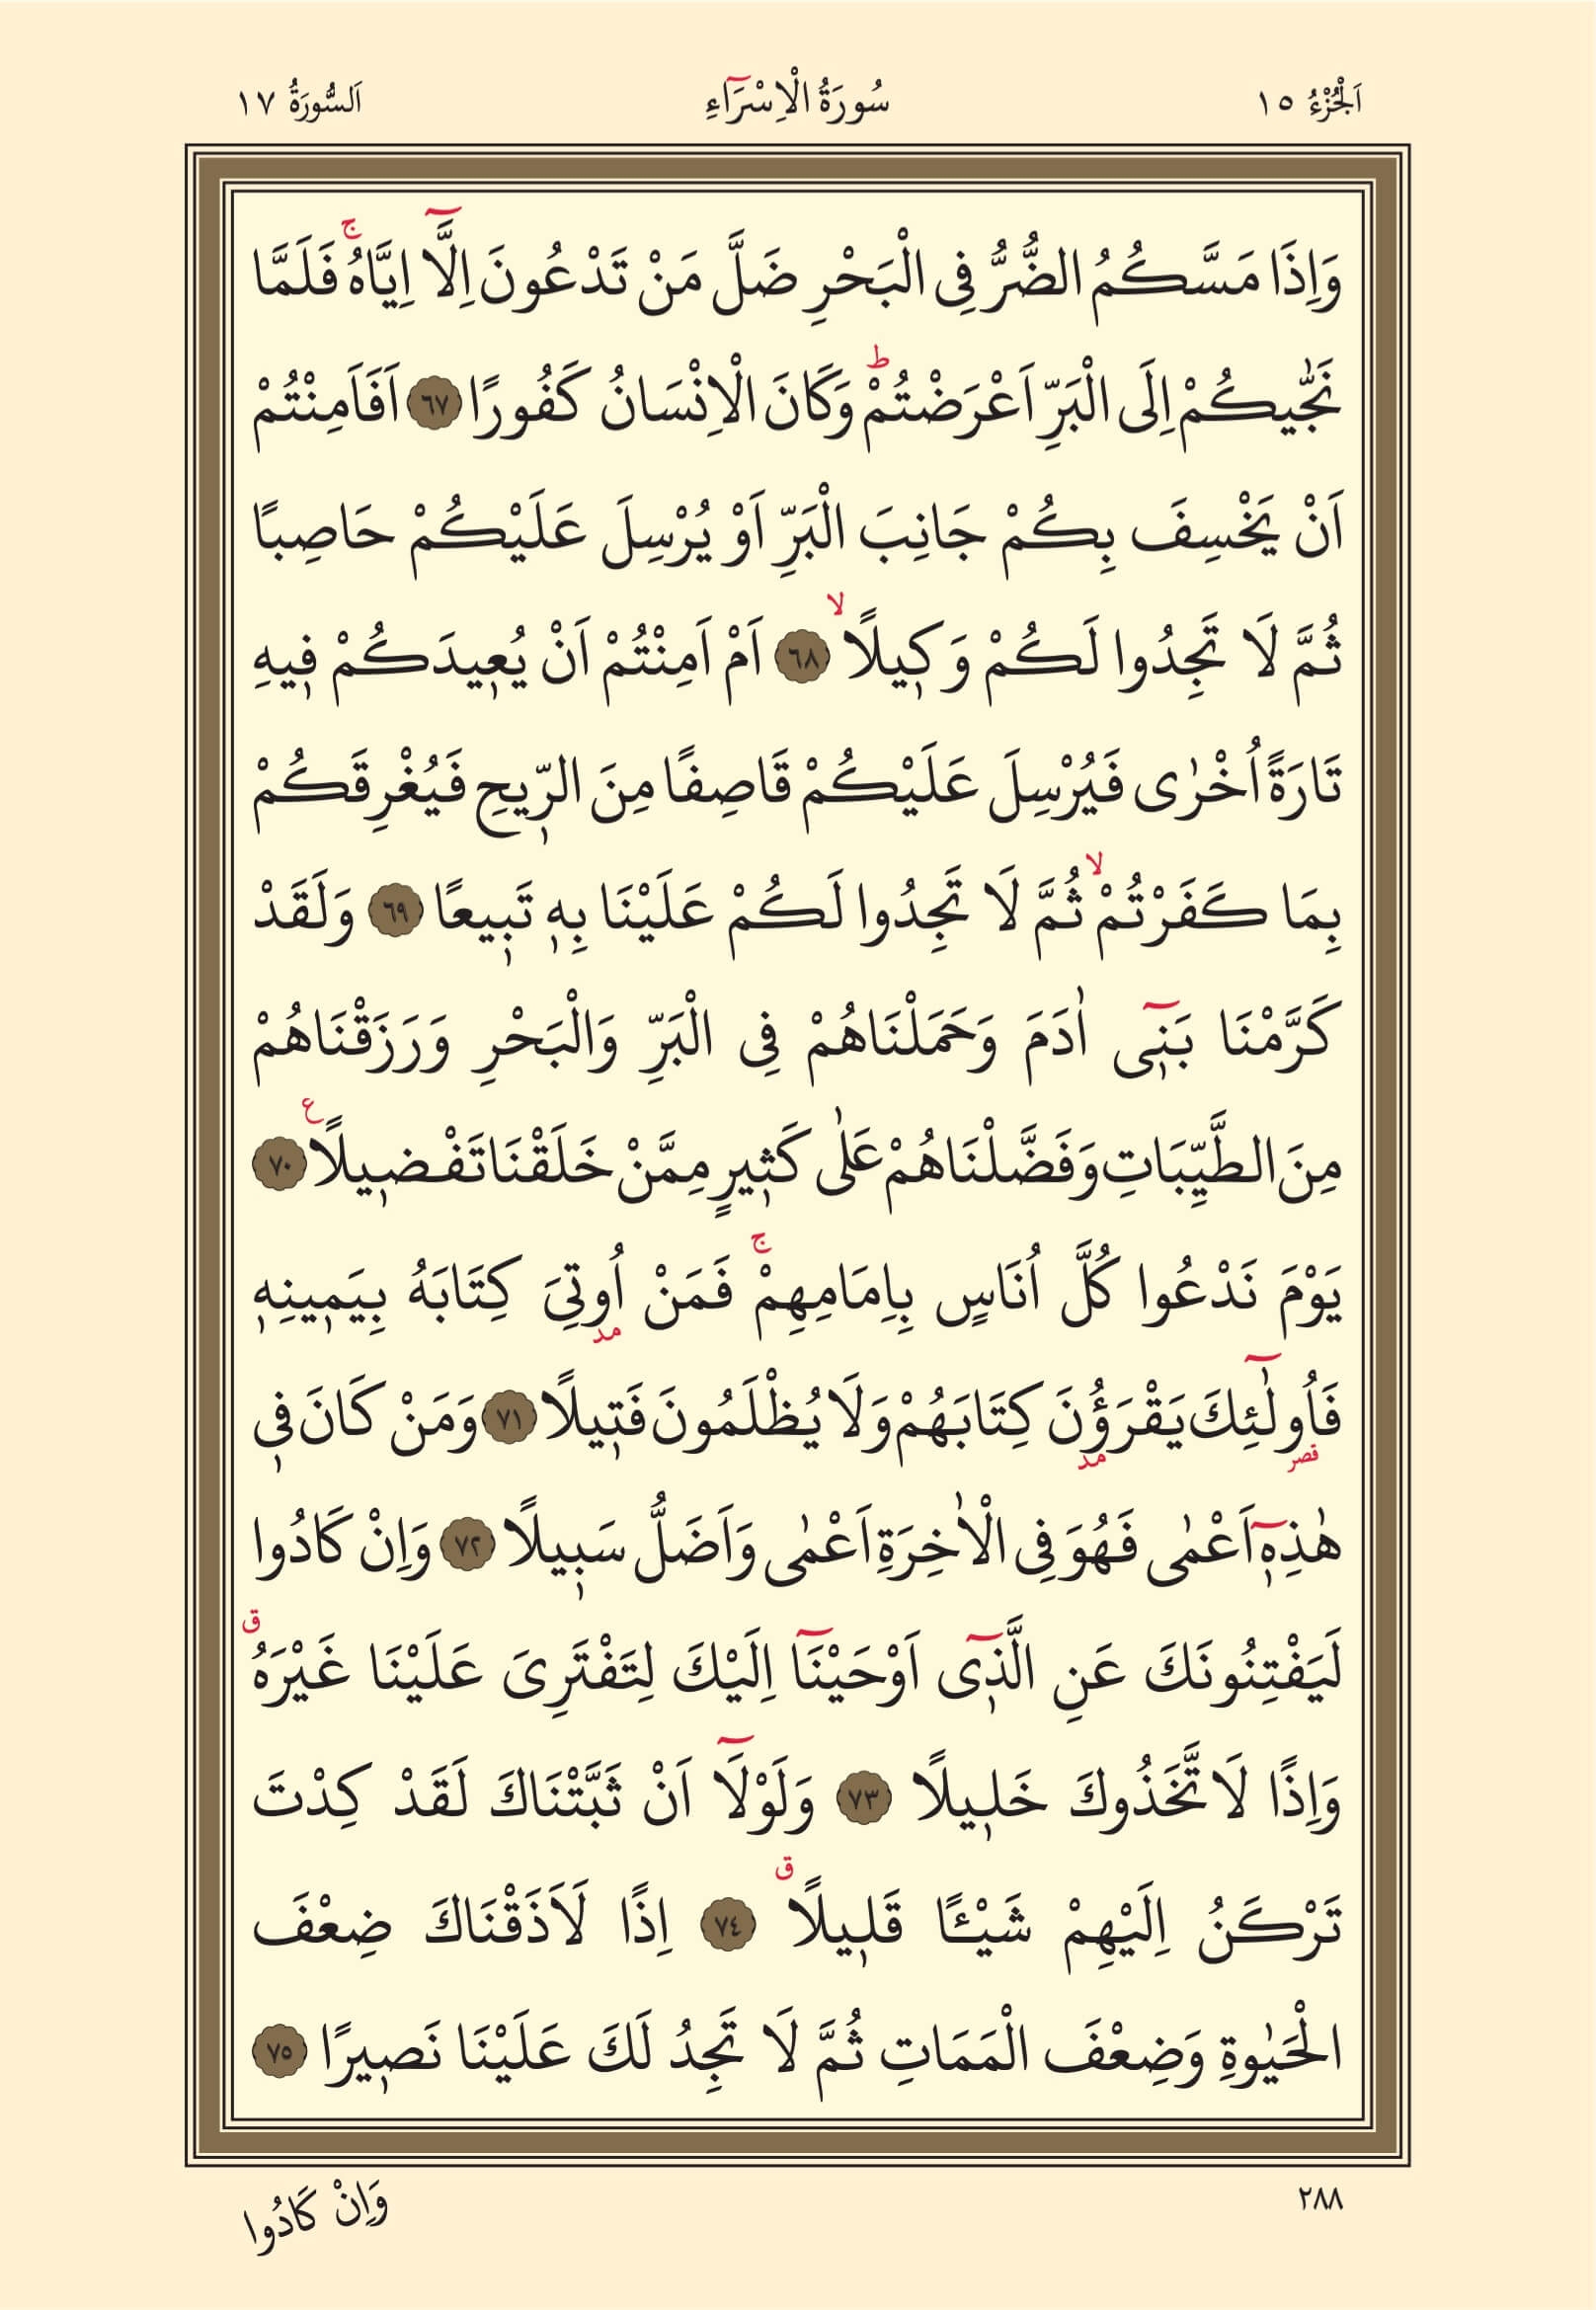 اَلْجُزْءُ ١٥ سُورَةُ الْاِسْرَٓاءِ اَلسُّورَةُ ١٧
وَاِذَا مَسَّكُمُ الضُّرُّ فِى الْبَحْرِ ضَلَّ مَنْ تَدْعُونَ اِلَّٓا اِيَّاهُۚ فَلَمَّا
نَجّٰيكُمْ اِلَى الْبَرِّ اَعْرَضْتُمْۜ وَكَانَ الْاِنْسَانُ كَفُورًا ٦٧ اَفَاَمِنْتُمْ
اَنْ يَخْسِفَ بِكُمْ جَانِبَ الْبَرِّ اَوْ يُرْسِلَ عَلَيْكُمْ حَاصِبًا
ثُمَّ لَا تَجِدُوا لَكُمْ وَكٖيلًاۙ ٦٨ اَمْ اَمِنْتُمْ اَنْ يُعٖيدَكُمْ فٖيهِ
تَارَةً اُخْرٰى فَيُرْسِلَ عَلَيْكُمْ قَاصِفًا مِنَ الرّٖيحِ فَيُغْرِقَكُمْ
بِمَا كَفَرْتُمْۙ ثُمَّ لَا تَجِدُوا لَكُمْ عَلَيْنَا بِهٖ تَبٖيعًا ٦٩ وَلَقَدْ
كَرَّمْنَا بَنٖٓى اٰدَمَ وَحَمَلْنَاهُمْ فِى الْبَرِّ وَالْبَحْرِ وَرَزَقْنَاهُمْ
مِنَ الطَّيِّبَاتِ وَفَضَّلْنَاهُمْ عَلٰى كَثٖيرٍ مِمَّنْ خَلَقْنَا تَفْضٖيلًا ع ٧٠
يَوْمَ نَدْعُوا كُلَّ اُنَاسٍ بِاِمَامِهِمْۚ فَمَنْ اُوتِىَ كِتَابَهُ بِيَمٖينِهٖ
مد
فَاُولٰٓئِكَ يَقْرَؤُنَ كِتَابَهُمْ وَلَا يُظْلَمُونَ فَتٖيلًا ٧١ وَمَنْ كَانَ فٖى
قصر مد
هٰذِهٖٓ اَعْمٰى فَهُوَ فِى الْاٰخِرَةِ اَعْمٰى وَاَضَلُّ سَبٖيلًا ٧٢ وَاِنْ كَادُوا
لَيَفْتِنُونَكَ عَنِ الَّذٖٓى اَوْحَيْنَٓا اِلَيْكَ لِتَفْتَرِىَ عَلَيْنَا غَيْرَهُ ق
وَاِذًا لَاتَّخَذُوكَ خَلٖيلًا ٧٣ وَلَوْلَٓا اَنْ ثَبَّتْنَاكَ لَقَدْ كِدْتَ
تَرْكَنُ اِلَيْهِمْ شَيْـًٔا قَلٖيلًا ق ٧٤ اِذًا لَاَذَقْنَاكَ ضِعْفَ
الْحَيٰوةِ وَضِعْفَ الْمَمَاتِ ثُمَّ لَا تَجِدُ لَكَ عَلَيْنَا نَصٖيرًا ٧٥
٢٨٨ وَاِنْ كَادُوا